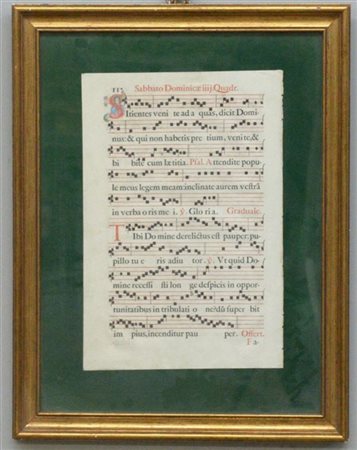 115 Sabbato Dominicæ iiij. Quadr.
Sitientes veni te ad a quas, dicit Domi-
nus: & qui non habetis pre tium, veni te, &
bi bite cum læ titia. Psal. A ttendite popu-
le meus legem meam: inclinate aurem vestrã
in verba o ris me i. ℣. Glo ri a. Graduale.
Tibi Do mine derelictus est pauper: pu-
pillo tu e ris adiu tor. ℣. Vt quid Do-
mine recessi sti lon ge despicis in oppor-
tunitatibus in tribulati o ne: dũ super bit
im pius, incenditur pau per. Offert.
F a-